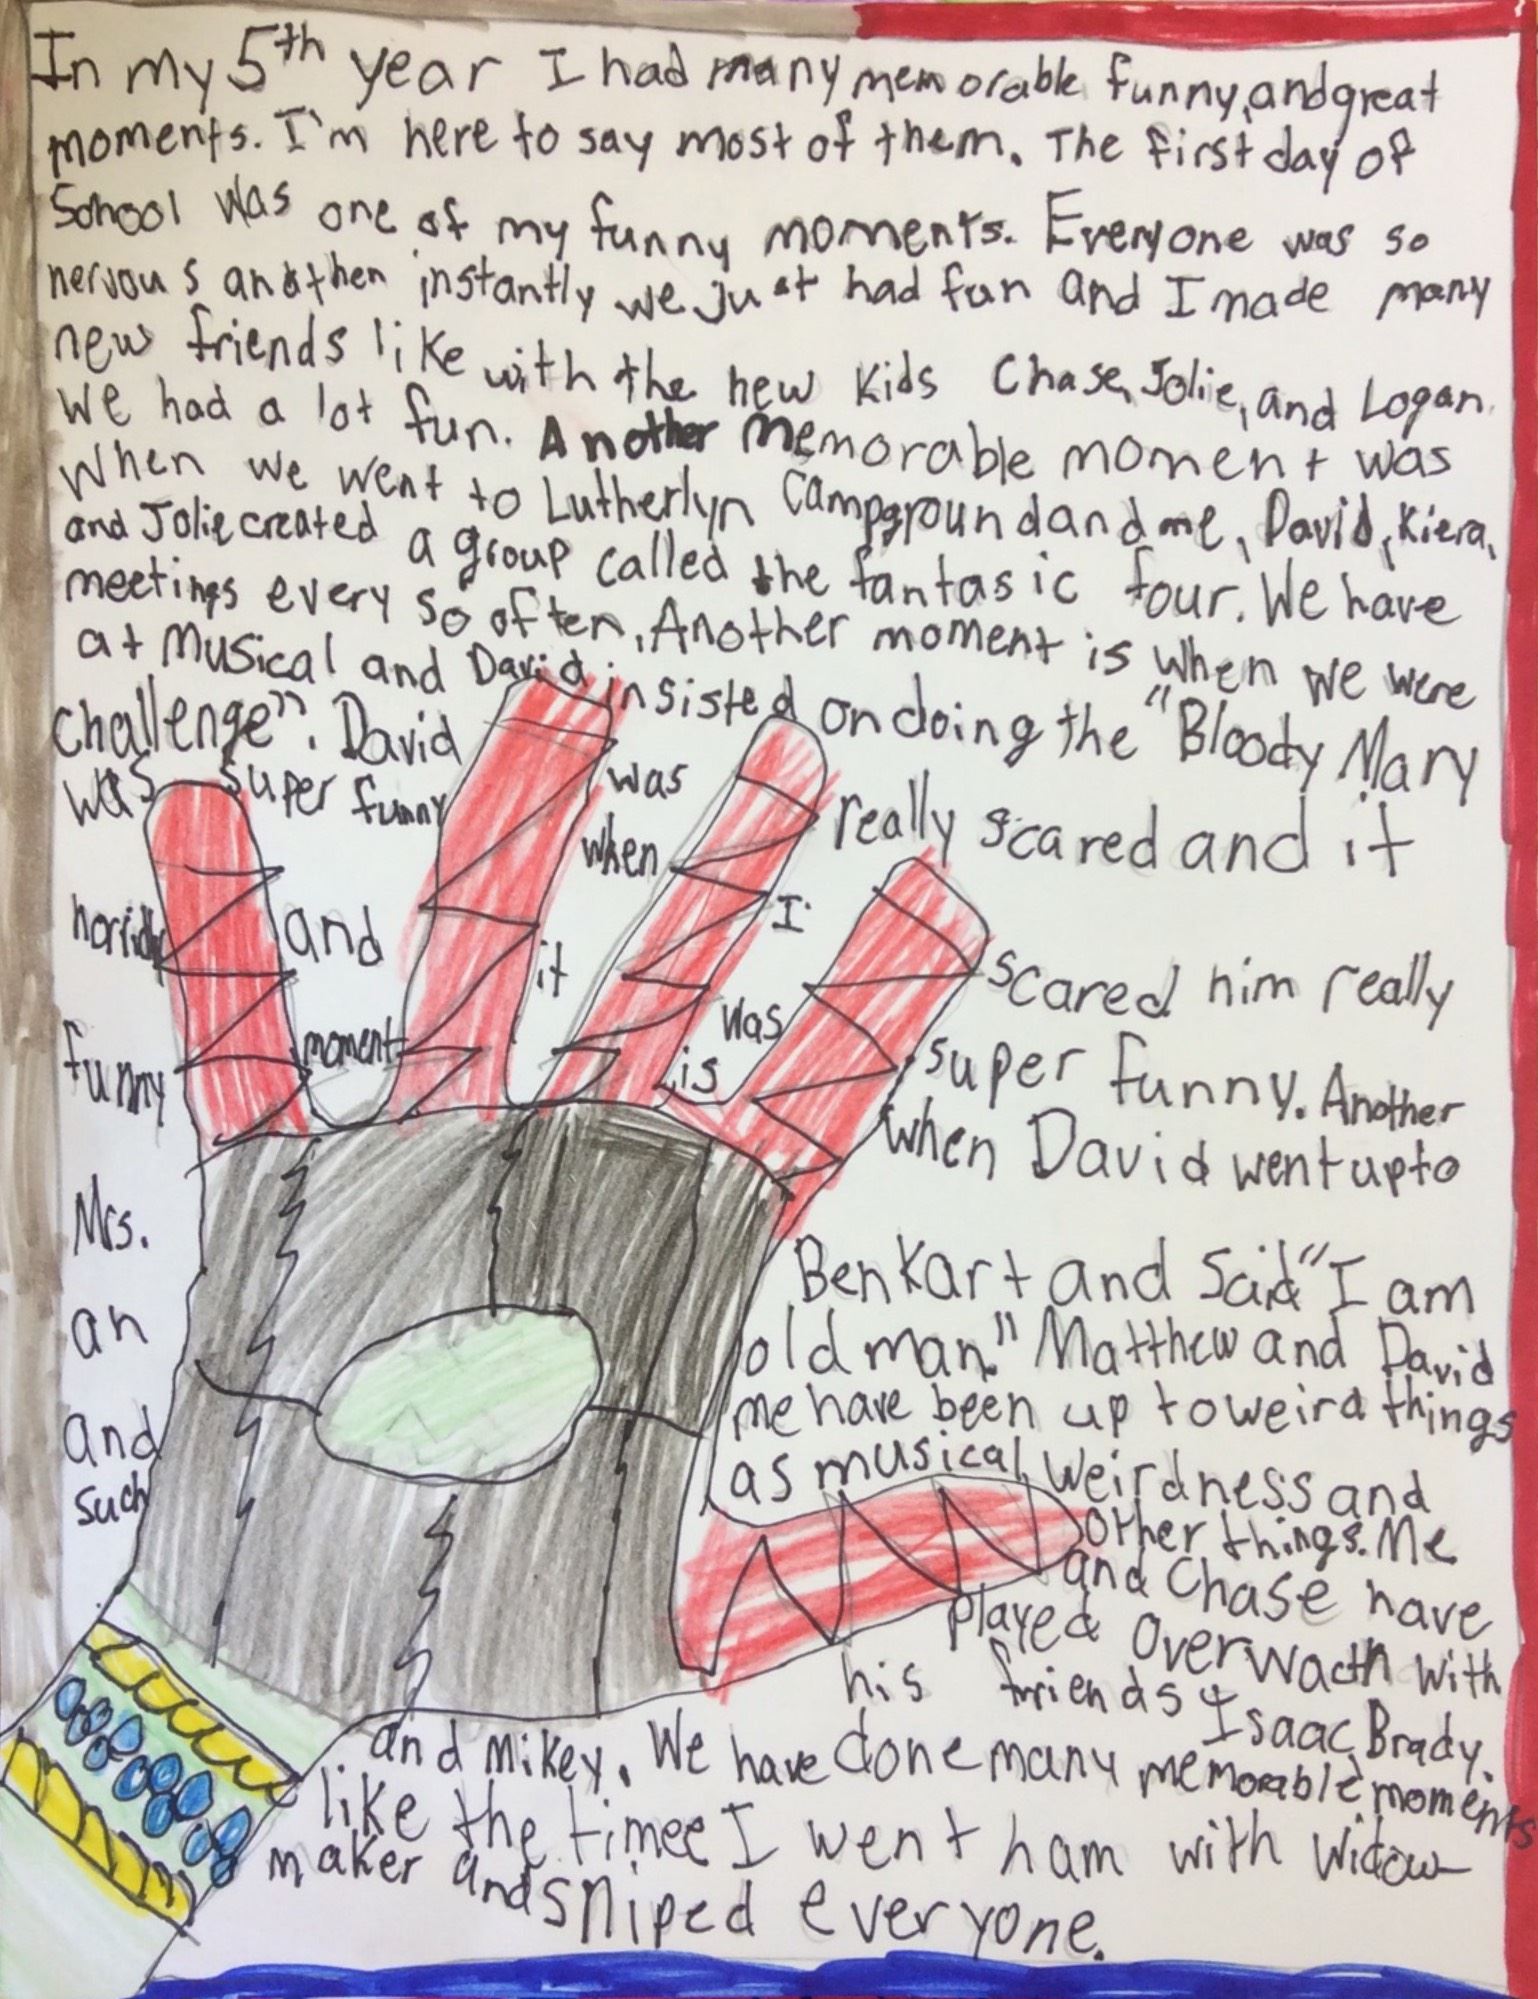 In my 5th year I had many memorable funny, and great
moments. I'm here to say most of them. The first day of
School was one of my funny moments. Everyone was so
nervous and then instantly we just had fun and I made many
new friends like with the new kids Chase, Jolie, and Logan.
We had a lot fun. Another memorable moment was
when we went to Lutherlyn Campground and me, David, Kiera,
and Jolie created a group called the fantasic four. We have
meetings every so often. Another moment is when we were
at musical and David insisted on doing the "Bloody Mary
challenge". David was really scared and it
was super funny when I scared him really
horridly and it was super funny. Another
funny moment is when David went up to
Mrs. Benkart and said "I am
an old man." Matthew and David
and me have been up to weird things
such as musical weirdness and
other things. Me
and Chase have
played Overwacth with
his friends Isaac, Brady,
and Mikey. We have done many memorable moments
like the timee I went ham with Widow-
maker and sniped everyone.